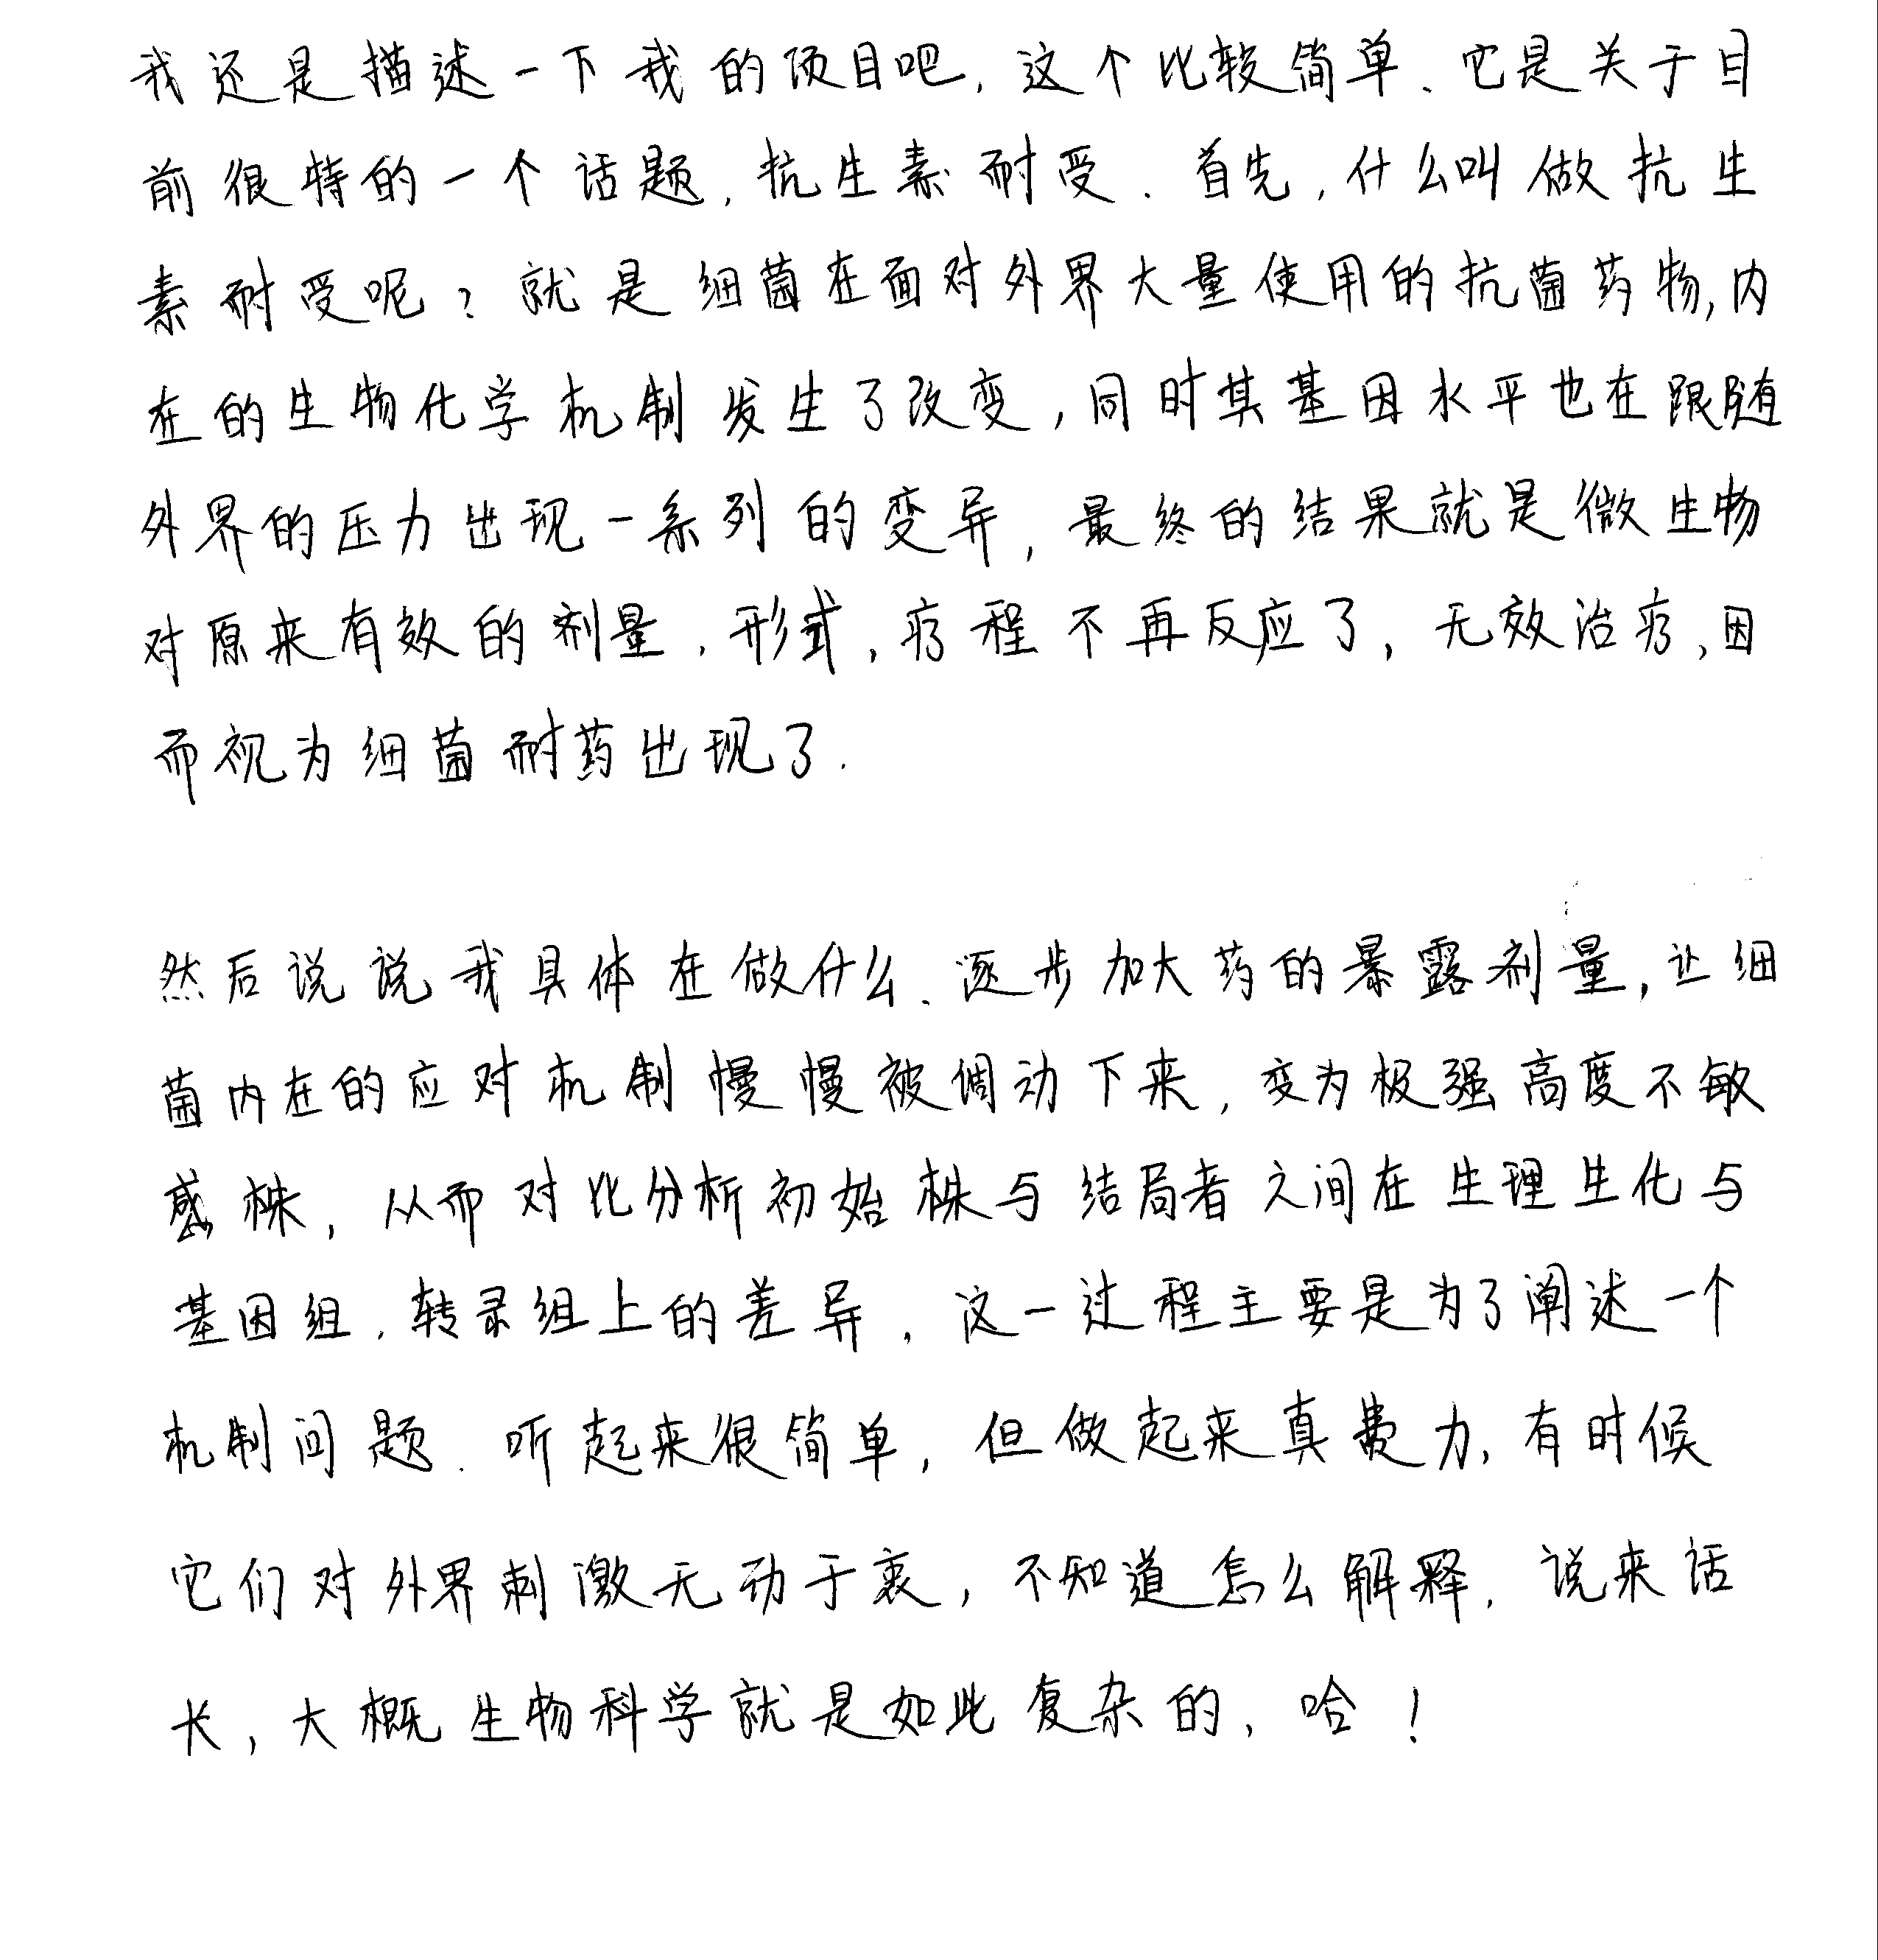 我还是描述一下我的项目吧，这个比较简单、它是关于目
前很特的一个话题，抗生素耐受．首先，什么叫做抗生
素耐受呢？就是细菌在面对外界大量使用的抗菌药物,内
在的生物化学机制发生了改变，同时其基因水平也在跟随
外界的压力出现一系列的变异，最终的结果就是微生物
对原来有效的剂量，形式，疗程不再反应了，无效治疗,因
而视为细菌耐药出现了.
然后说说我具体在做什么、逐步加大药的暴露剂量，让细
菌内在的应对机制慢慢被调动下来，变为极强高度不敏
感株，从而对比分析初始株与结局者之间在生理生化与
基因组，转录组上的差异，这一过程主要是为了阐述一个
机制问题．听起来很简单，但做起来真费力，有时候
它们对外界刺激无动于衷，不知道怎么解释，说来话
长，大概生物科学就是如此复杂的，哈！